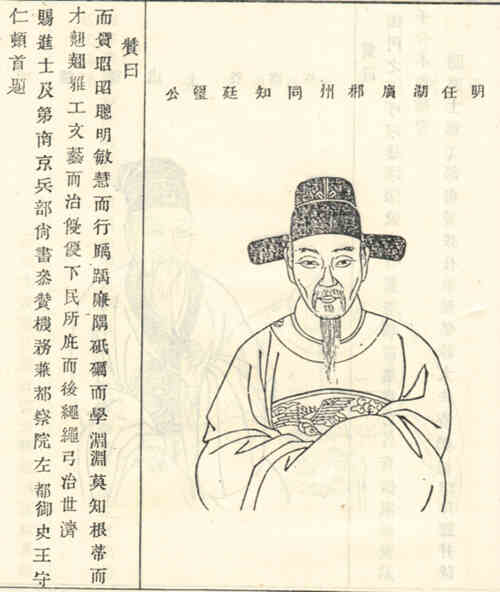 明任湖廣郴州同知廷璽公
贊曰
而資昭昭聰明敏慧而行踽踽廉隅砥礪而學淵淵莫知根蒂而
才翹翹雅工文藝而治優優下民所庇而後繩繩弓治世濟
賜進士及第南京兵部尚書叅贊機務兼都察院左都御史王守
仁頓首題